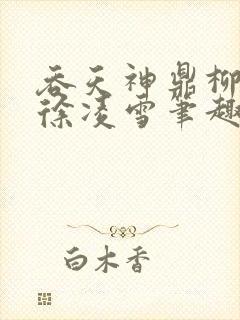 吞天神鼎柳
徐凌雪笔趣
白木香